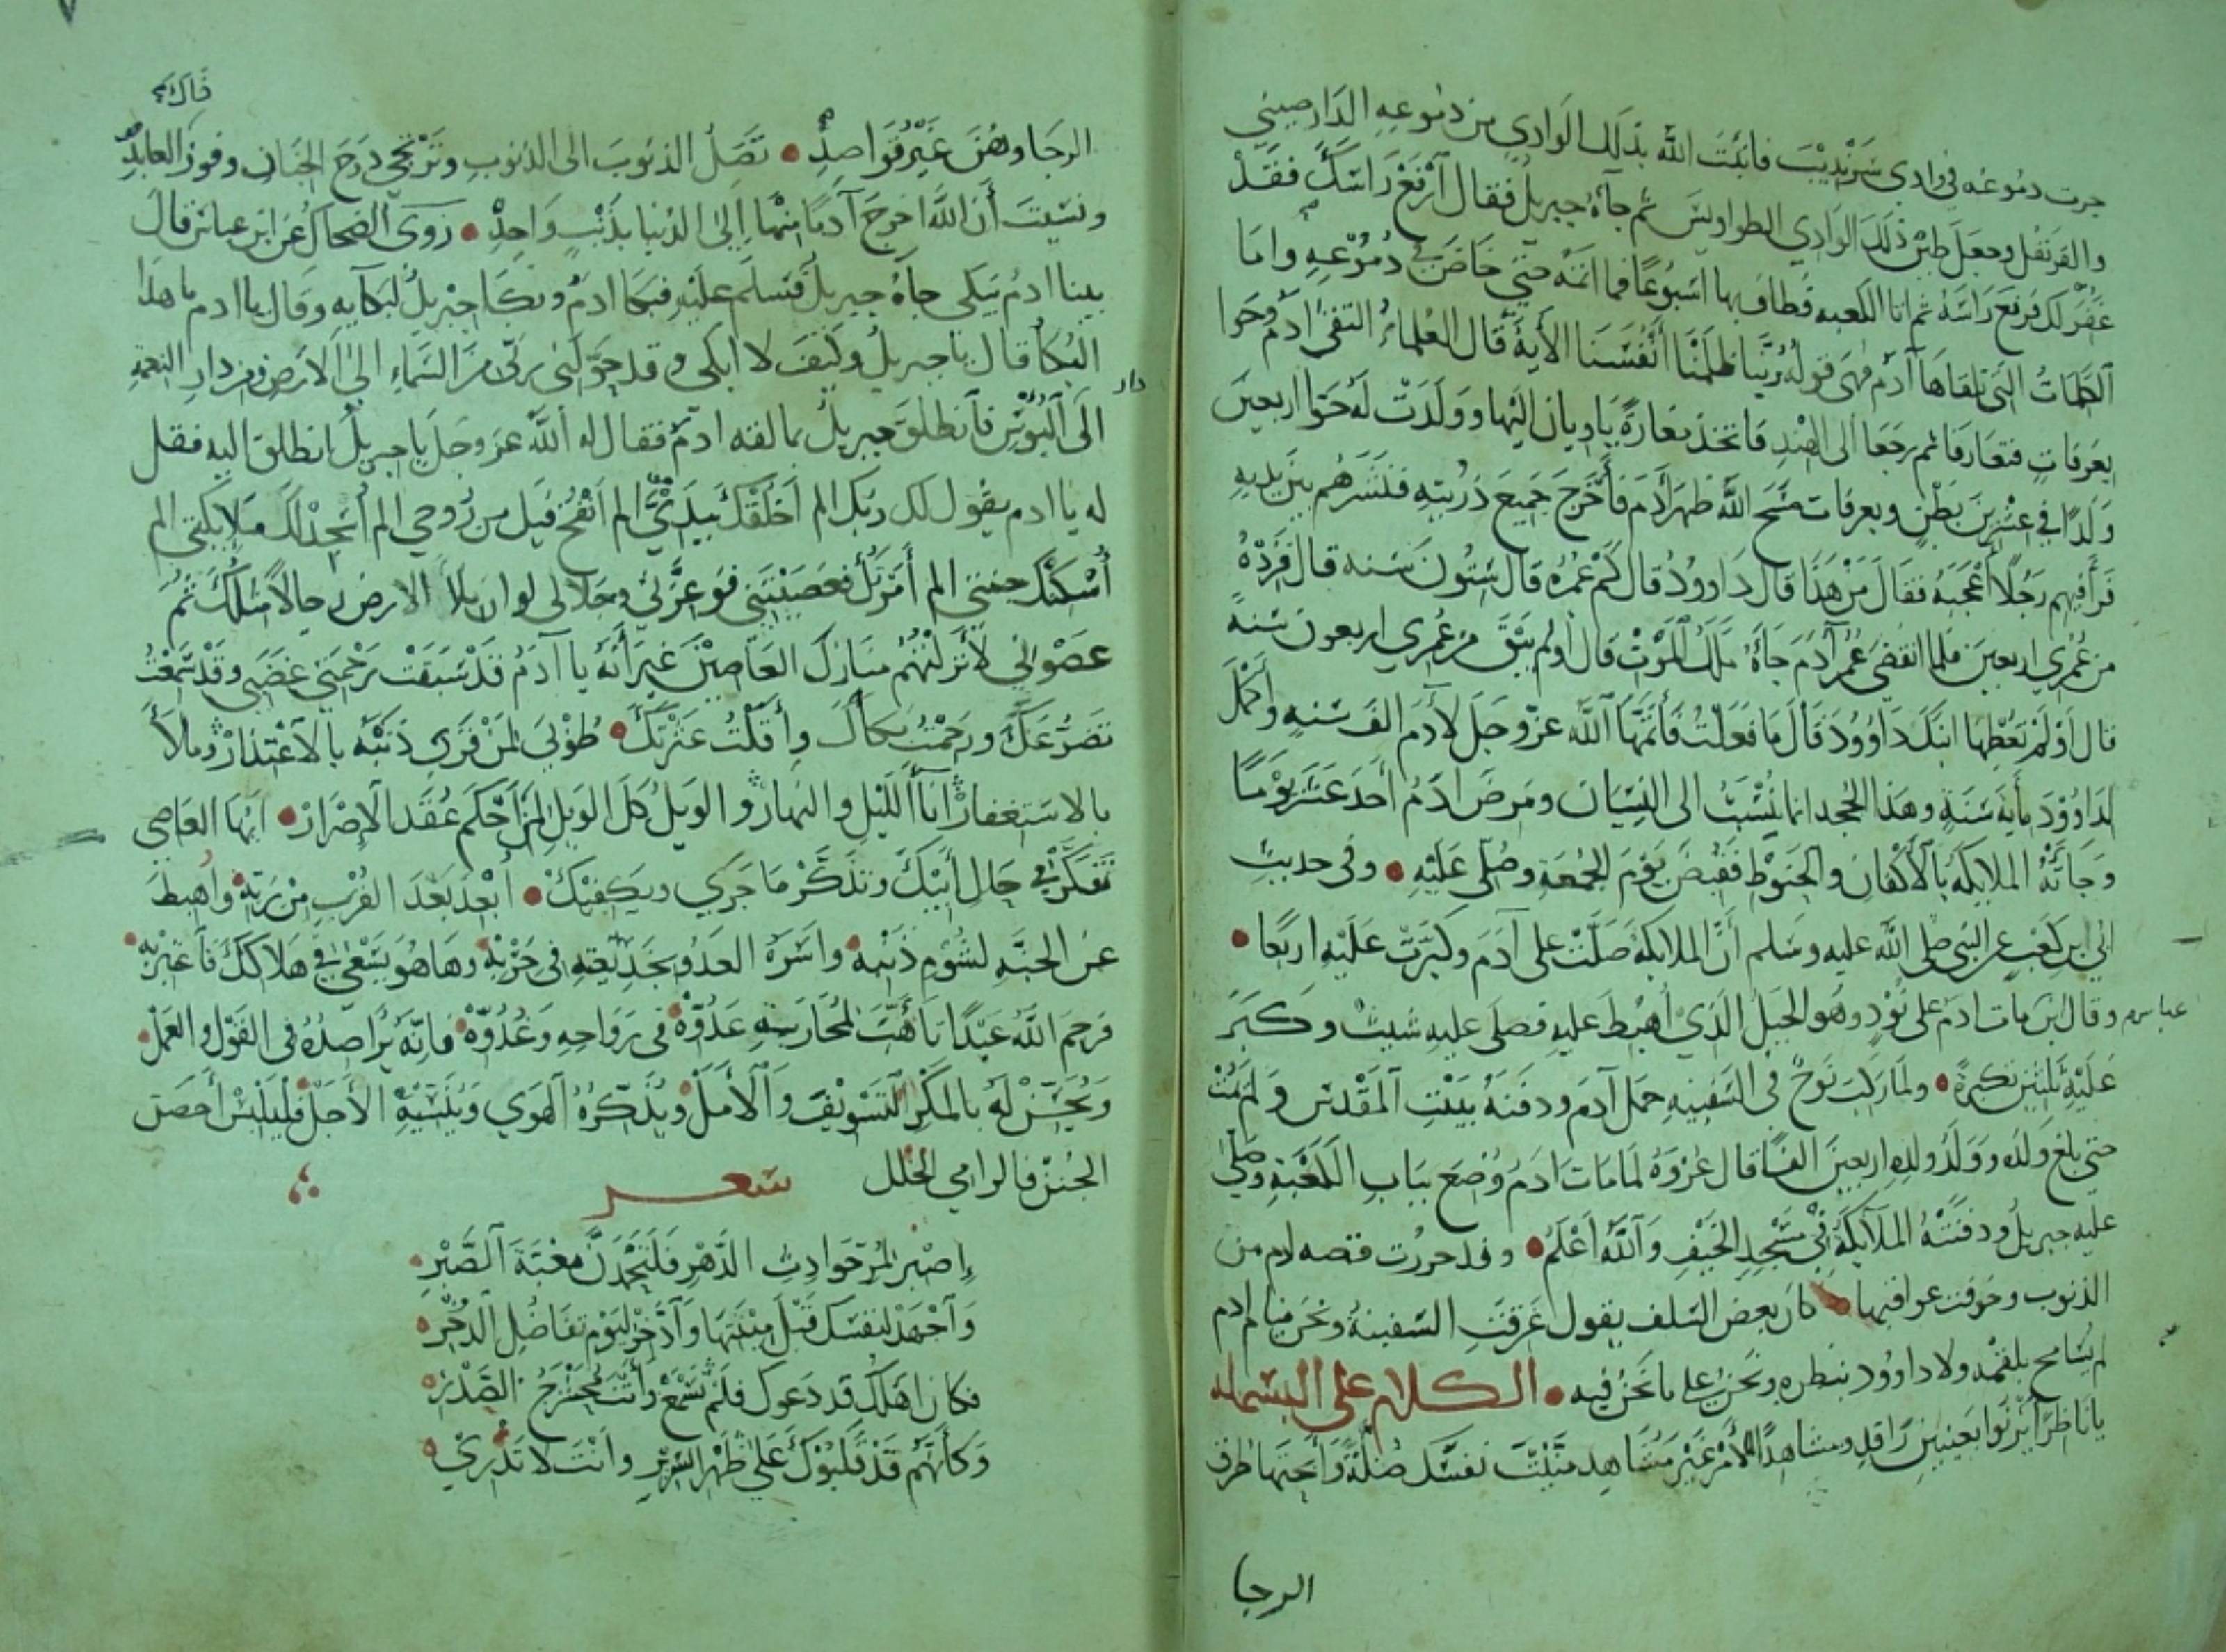 جرت دموعه في وادي سَرَنْديْبَ فانبَتَ الله بذلك الوَادِي من دمُوعِهِ الدَارصيني
والقرنفل وجعلَ طيْرَ ذلك الوَادِي الطواويسَ ثم جاَهُ جبريلُ فقال اَرْفَعْ رَاسَكَ فقَدْ
غُفِرَ لك فرفعَ رَاسَهُ ثم اتا الكعبه فطاف بها اسْبُوعًا فما اتمه حتي خَاضَ في دُمُوْعهِ واما
الكَلمَاتُ التي تلقاهَا آدم فهي قولهُ رَبَّنا ظَلَمْنَا أَنْفُسَنَا الأَيةَ قال العُلماءُ التقى ادمُ وحوا
بعَرفاتٍ فتعارفا ثم رجَعَا الى الهِنْدِ فاتخذ مغارَةً يَاويانِ اليْهَا وَوَلَدَتْ لهُ حَوَا اربعينَ
وَلدًا في عشرينَ بَطْن وبعرفات مَسَحَ اللهُ ظهرَ ادَمَ فأَخْرَجَ جَميعَ ذرّيتهِ فنَشَرَهُم بين يديهِ
فَرَأَفيهِم رَجُلًا أَعْجَبَهُ فقَالَ مَنْ هَذَا قال دَاووُدُ قال كَمْ عُمرُهُ قال ستُونَ سَنه قال فَزِدْهُ
من عُمُري اربعينَ فلما انقضى عُمرُ آدَمَ جَاَهُ مَلَكُ المَوْتْ قال أولم يَبْقَ من عُمري اربعون سَنَةً
قال أوَلَمْ تُعْطِهَا ابنَكَ دَاوُوْدَ قَالَ مَا فعَلتُ فَأَتَمَّهَا اللَّهُ عزَّ وجَلَ لآدَم الفَ سَنهٍ وأكْمَلَ
لدَاوُوْدَ مأية سَنَةٍ وهذا الجُحد انما يُنْسَبُ الى النِسْيَان ومَرِضَ ادَمُ أحَدَ عَشَرَ يوْمًا
وَجَاَتْهُ الملايكة بَالأكْفانِ والحَنوْطِ فَقُبضَ يَوْمَ الجُمعَةِ وصُلّى عَلَيْهِ • وفي حديثِ
ابي ابن كعْبٍ عن النبي صلى الله عليه وسَلم أنَّ الملايكَةَ صَلَّتْ على آدَمَ وكبَّرَتْ عَلَيْهِ اربَعًا •
وقال ابن عباس مات ادم على نُوْدٍ وهُو الجَبَلُ الذَيْ أُهْبِطَ عليهِ فصلَى عليهِ شيثُ وكَبَّرَ
عَلَيْهِ ثلثينَ تكبيرةً • ولمَّا رَكِبَ نوحٌ في السَفينهِ حمَلَ آدَمَ ودفَنَهُ ببَيْتِ المَقْدسِ وَلمْ يمُتْ
حتى بلغَ وَلدُه ووَلَدُ ولدِهِ اربعينَ الفًا قال عُرْوَةُ لمَا مَاتَ ادَمَ وُضِعَ ببَابِ الكَعْبَةِ وصَلى
عليه جبريلُ ودفنَتْهُ الملَايكَةُ في مَسْجِدِ الخَيْفِ وَاللَّهُ أَعْلَمُ • وقد حررت قصه ادم من
الذنوب وخوفت عواقبها • كان بعض السَلف يقول غَرِقَتِ السَفينةُ ونحنُ نيام ادم
لم يُسَامح بلقمْه ولا داوُود بنظره ونحنُ على ما نحنُ فيه • الكلام على البسمله
يا ناظرًا يَرْنوا بعَينين رَاقدٍ ومشاهدًا للأمْرِ غَيْر مشَاهِد منَّيْتَ نفسَكَ ضلَّةً وَأَبَحتَها طرق
الرجا
الرجَا وهُنَ غيْرُ قوَاصِدِ • تَصِلُ الذنوبَ الى الذنوبِ وتَرْتَجي دَرَجَ الجنَانِ وفوزَ العابدِ
ونسَيتَ أنَ اللَّهَ اخرجَ آدمًا منهَا إِلى الدُنيا بذَنْبٍ وَاحِدِ • رَوَى الضحاكُ عن ابن عباس قال
بينا ادمُ يَبكي جاَهُ جبريلُ فسَلّم علَيْهِ فبَكا ادمُ وبكَا جبْريلُ لبكآيهِ وقال يا ادم ما هذا
البُكا قال يَا جبريلُ وكيفَ لا ابكي وقد حَوَّلني رَبّى منَ السَّمَاءِ الى الارض ومن دارِ النعمةِ
الى دار البُوْسِ فانْطلقَ جبريلُ بمالقه ادمُ فقال له اللهُ عز وجلَ يا جبريلُ انطلق اليه فقل
له يا ادم يقُول لكَ ربّك الم أخْلقْكَ بيدَيَّ الم أنفُخ فيك من رُوحي الم أُسْجِدْ لكَ ملايكتي الم
أُسْكنْكَ جنتي الم أمُرْكَ فعَصَيْتَني فوَعِزَّتي وجَلالى لو ان ملأَ الارض رجالًا مثلكَ ثمُ
عصَوْاني لأَنزلتُهُم منَازل العَاصِيْنَ غيرَ أَنهُ يا آدَمُ قدْ سَبَقَتْ رَحْمَتي غضَبي وقد سَمعْتُ
تضَرُّعَكَ ورَحمْتُ بُكاَكَ وأَقلْتُ عَثرْتكَ • طُوْبىَ لمَنْ قَرَن ذَنبَه بالاعْتِذارْ وملأَ
بالاسَتغفارْ أنآَ اللّيْلِ والنهارْ والوَيلُ كلَ الوَيلِ لمَنْ أحْكَمَ عُقَدَ الإصْرَارْ • ايُّهَا العَاصي
تَفكَّرْ في حَالِ أَبيْكَ وتذَكَّرْ مَا جَرَي ويَكفيْكْ • أُبْعِدَ بَعْدَ القُرْبِ منْ رَبّهْ وأُهبِطَ
عن الجنَّهِ لشُوْمِ ذَنْبهْ وأسَرَهُ العَدُو بخَديْعَتهِ في حَزْبهْ وهَا هُوَ يَسْعَىْ في هَلاككَ فاعْتَبرْ بهْ •
فرحِمَ اللَّهُ عَبدًا تأَهَّبَ لمُحارَبتِهِ عَدُوِّهْ في رَوَاحهِ وَغُدُوّهْ فانهُ يُرَاصِدُهُ فى القَوْلِ والعَمَلْ
وَيُحَسّنْ لهُ بالمكْرِ التَسْويْفَ وَالأمَلْ ويُذَكّرُهُ الهَوي ويُنْسيْهِ الأجَلْ فليَلبَسْ أحصن
الجُنَنْ فالرامي الخلل شعر
إِصْبِرْ لمُرِّ حَوَادِثِ الدَّهْرِ فَلَتَحْمَدَنَّ مغَبَّةَ الصَّبْرِ
وَاجْهَدْ لنفسَكَ قبْلَ مِيْتَتِهَا وَادَّخِرْ ليَوْمِ تفَاضُلِ الذُخْرِ
فكان اهلكَ قد دَعوكَ فلمْ تسْمَعْ وأنتَ مُحشْرَجُ الصَّدْرِ
وَكأنَهُم قَدْ قلبُوْكَ عَلي ظهْرِ السَرِيْرِ وانْتَ لا تَدْرِيْ